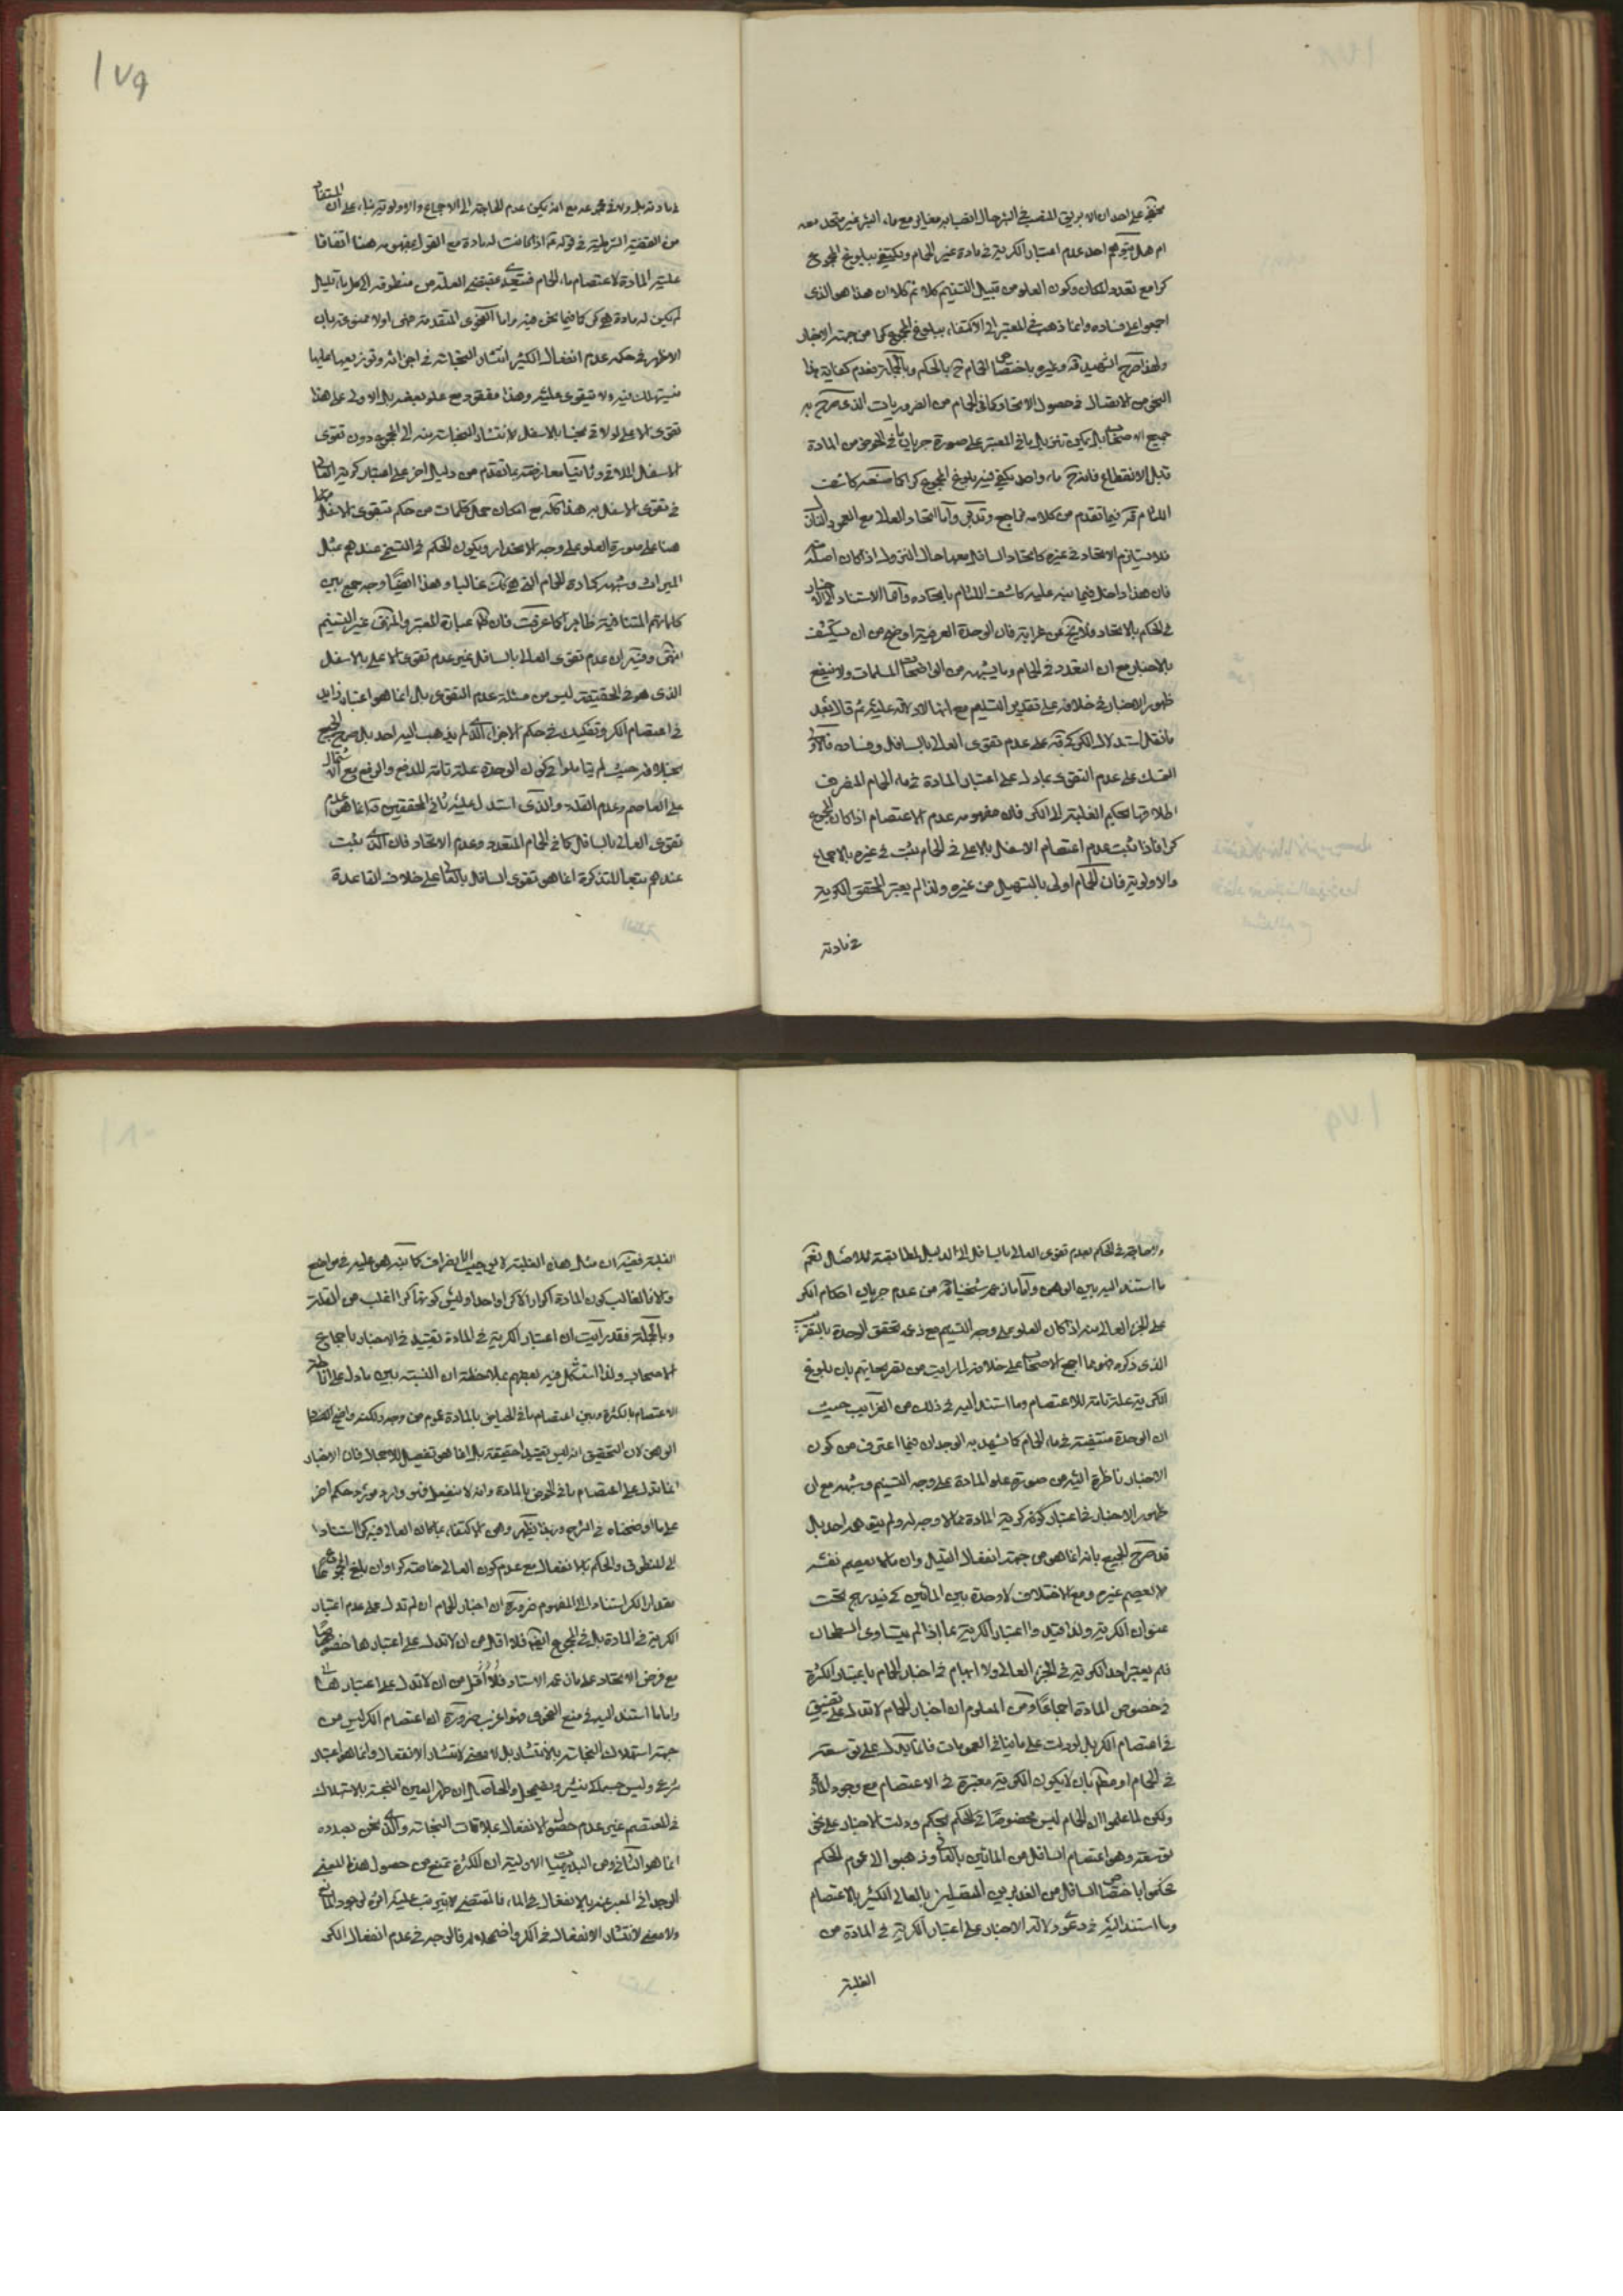 ١٧٩
يخفى على احد ان الابريق المنصب في البئر حال انصبابه مغاير مع ماء البئر غير متحد معه
ام هل يتوهم احد عدم اعتبار الكرية في مادة غير الحمام ويكتفي ببلوغ المجموع
كرا مع تعدد المكان وكون العلو من قبيل التسنيم كلا ثم كلا ان هذا هو الذي
اجمعوا على فساده وانما ذهب في المعتبر الى الاكتفاء ببلوغ المجموع كرا من جهة الاخبار
ولهذا صرح الشهيد قه وغيره باختصاص الحمام ح بالحكم وبالجملة فعدم كفاية هذا
النحو من الاتصال في حصول الاتحاد كما في الحمام من الضروريات الذي صرح به
جميع الاصحاب بل يمكن تنزيل ما في المعتبر على صورة جريان ما في الحوض من المادة
قبل الانقطاع فانه ح ماء واحد يكفي فيه بلوغ المجموع كرا كما صنعه كاشف
اللثام قه فيما تقدم من كلامه فراجع وتدبر واما اتحاد العالي مع العمود النازل
فلا يستلزم الاتحاد في غيره كاتحاد السافل معها حال النزول اذا كان اصله منه
فان هذا داخل فيما نبه عليه كاشف اللثام باتحاده واما الاستناد الى الاخبار
في الحكم بالاتحاد فلا يخ عن غرابة فان الوحدة العرفية اوضح من ان يستكشف
بالاخبار مع ان التعدد في الحمام وما يشبهه من الواضحات المسلمات ولا ينفع
ظهور الاخبار في خلافه على تقدير التسليم مع انها لا دلالة عليه ثم قال بعد
ما نقل استدلال الكركي قه على عدم تقوى العالي بالسافل وفساده فالاولى
التمسك على عدم التقوى بما دل على اعتبار المادة في ماء الحمام المنصرف
اطلاقها بحكم الغلبة الى الكر فان مفهومه عدم الاعتصام اذا كان المجموع
كرا فاذا ثبت عدم اعتصام الاسفل بالاعلى في الحمام يثبت في غيره بالاجماع
والاولوية فان الحمام اولى بالتسهيل من غيره ولذا لم يعتبر المحقق الكرية
في مادته
في مادته بل ولا في مجموعه مع انه يكفي عدم الحاجة الى الاجماع والاولوية بناء على ان المستفاد
من القضية الشرطية في قوله ع اذا كانت له مادة مع القول بمفهومه هنا اتفاقا
علية المادة لاعتصام ماء الحمام فيتعدى بمقتضى العلة من منطوقه الى كل ماء قليل
لم يكن له مادة هي كر كما فيما نحن فيه واما الفحوى المتقدمة فهي اولا ممنوعة بان
الاظهر في حكمة عدم انفعال الكثير انتشار النجاسة في اجزائه وتوزيعها عليها
فيستهلك فيه ولا يتقوى عليه وهذا مفقود مع علو بعضه بل الاولى على هذا
تقوى الاعلى لو لاقى نجسا بالاسفل لانتشار النجاسة منه الى المجموع دون تقوى
الاسفل الملاقي وثانيا معارضة بما تقدم من دليل اخر على اعتبار كرية العالي
في تقوى الاسفل به هذا كله مع امكان حمل كلمات من حكم بتقوى الاسفل
هنا على صورة العلو على وجه الانحدار ويكون الحكم في التسنيم عندهم مثل
الميزاب وشبهه كمادة الحمام التي هي كك غالبا وهذا ايضا وجه جمع بين
كلماتهم المتنافية ظاهرا كما عرفت فان ظ عبارة المعتبر والمنتهى غير التسنيم
انتهى وفيه ان عدم تقوى العالي بالسافل غير عدم تقوى الاعلى بالاسفل
الذي هو في الحقيقة ليس من مسئلة عدم التقوى بل انما هو اعتبار زايد
في اعتصام الكر وتفكيك في حكم الاجزاء الذي لم يذهب اليه احد بل صرح الجميع
بخلافه حيث لم يتأملوا في كون الوحدة علة تامة للدفع والرفع مع اشتمال
على العاصم وعدم القلة والذي استدل عليه ثاني المحققين قه انما هو عدم
تقوى العالي بالسافل كما في الحمام المتعدد وعدم الاتحاد فان الذي يثبت
عندهم تبعا للتذكرة انما هو تقوى السافل بالعالي على خلاف القاعدة
ولا حاجة في الحكم بعدم تقوى العالي بالسافل الى الدليل لمطابقته للاصل نعم
ما استند اليه بين الوهن واما ما زعمه شيخنا قه من عدم جريان احكام الكر
على الجزء العالي منه اذا كان العلو على وجه التسنيم مع فرض تحقق الوحدة بالتقريب
الذي ذكره فهو مما اجمع الاصحاب على خلافه لما رايت من تصريحاتهم بان بلوغ
الكرية علة تامة للاعتصام وما استند اليه في ذلك من الغرايب حيث
ان الوحدة منتفية في ماء الحمام كما يشهد به الوجدان فيما اعترف من كون
الاخبار ناظرة اليه من صورة علو المادة على وجه التسنيم وشبهه مع ان
ظهور الاخبار في اعتبار كونه كرية المادة مما لا وجه له ولم يتوهمه احد بل
قد صرح الجميع بانه انما هو من جهة انفعال القليل وان ما لا يعصم نفسه
لا يعصم غيره ومع الاختلاف لا وحدة بين المائين كي يندرج تحت
عنوان الكرية ولذا قيد وا اعتبار الكرية بما اذا لم يتساوى السطحان
فلم يعتبر احد الكرية في الجزء العالي ولا ابهام في اخبار الحمام باعتبار الكثرة
في خصوص المادة اجماعا ومن المعلوم ان اخبار الحمام لا تدل على تضييق
في اعتصام الكر بل لو دلت على ما ينافي العمومات فانما تدل على توسعة
في الحمام او مطلقا بان لا يكون الكرية معتبرة في الاعتصام مع وجود المادة
ولكن لما علموا ان الحمام ليس مخصوصا في الحكم بحكم ودلت الاخبار على نحو
توسعة وهو اعتصام السافل من المائين بالعالي وذهبوا الى عموم الحكم
حكموا باختصاص السافل من الغديرين المتصلين بالعالي الكثير بالاعتصام
وما استند اليه في دعوى دلالة الاخبار على اعتبار الكرية في المادة من
الغلبة
الغلبة ففيه ان مثل هذه الغلبة لا يوجب الانصراف كما نبه هو عليه في مواضع
والا فالغالب كون المادة اكرارا لا كرا واحدا وليس كونها كرا اغلب من القلة
وبالجملة فقد رايت ان اعتبار الكرية في المادة تقييد في الاخبار باجماع
الاصحاب ولذا استشكل فيه بعضهم بملاحظة ان النسبة بين ما دل على اناطة
الاعتصام بالكثرة وبين اعتصام ما في الحياض بالمادة عموم من وجه ولكنه واضح الفساد
الوهن لان التحقيق انه ليس تقييدا حقيقة بل انما هو تفصيل للاجمال فان الاخبار
انما تدل على اعتصام ما في الحوض بالمادة وانه لا ينفعل فهو وارد مورد حكم اخر
على ما اوضحناه في الشرح وبهذا يظهر وهن الاكتفاء بما كان العالي فيه كرا استنادا
الى المنطوق والحكم بالانفعال مع عدم كون العالي خاصة كرا وان بلغ المجموع
مقدار الكر استنادا الى المفهوم ضرورة ان اخبار الحمام ان لم تدل على عدم اعتبار
الكرية في المادة بل في المجموع ايضا فلا اقل من ان لا تدل على اعتبارها خصوصا
مع فرض الاتحاد على ما زعمه الاستاد فلا اقل من ان لا تدل على اعتبارها
واما ما استند اليه في منع الفحوى فهو اغرب ضرورة ان اعتصام الكر ليس من
جهة استهلاك النجاسة بالانتشار بل لا معنى لانتشار الانفعال وانما هو اعتبار
شرعي وليس جسما كي ينتشر ويضمحل والحاصل ان طهر العين النجسة بالاستهلاك
في المعتصم غير عدم حصول الانفعال بملاقات النجاسة والذي نحن بصدده
انما هو الثاني ومن البديهيات الاولية ان الكثرة تمنع من حصول هذا المعنى
الوجداني المعبر عنه بالانفعال في الماء فالمقتضي لا يترتب عليه اثره لوجود المانع
ولا معنى لانتشار الانفعال في الكر واضمحلاله فالوجه في عدم انفعال الكر